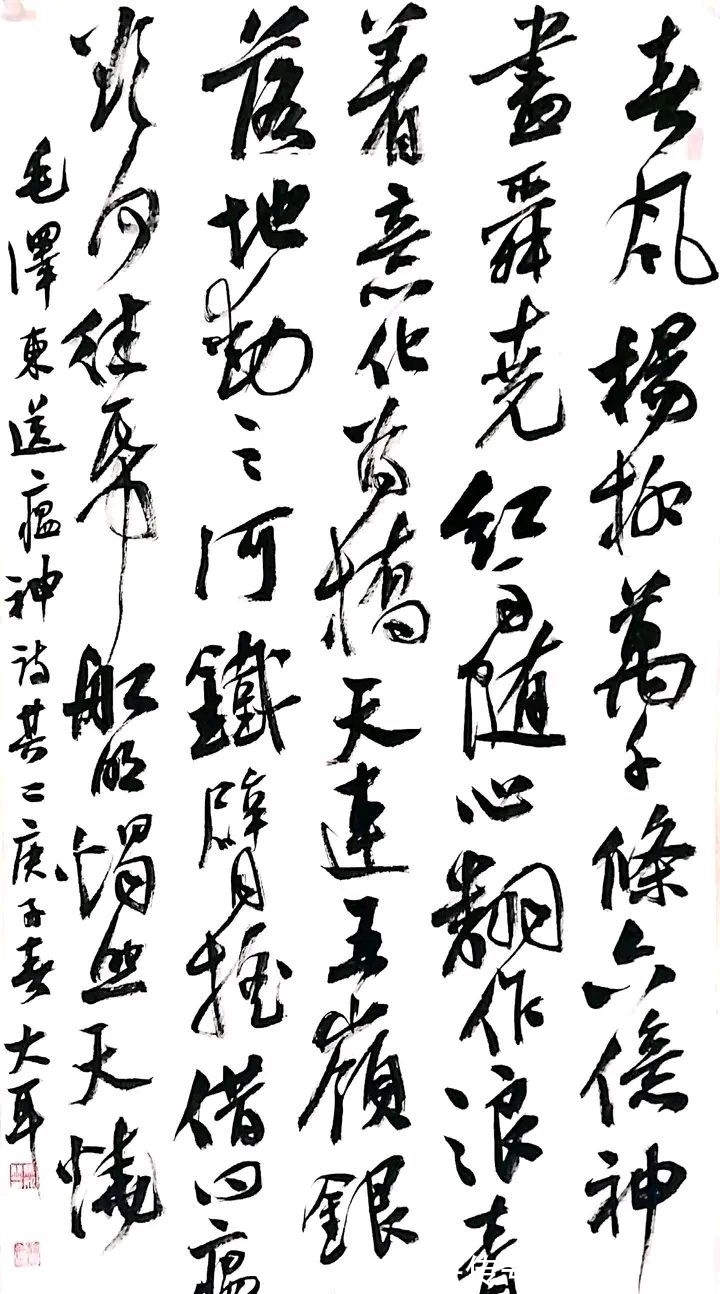 春風楊柳萬千條六億神
盡舜堯红雨随心翻作浪青
着意化为橋天連五嶺銀
落地動三河鐵臂摇借问瘟
欲何往帋船明燭照天燒
毛澤東送瘟神诗其二庚子春大耳